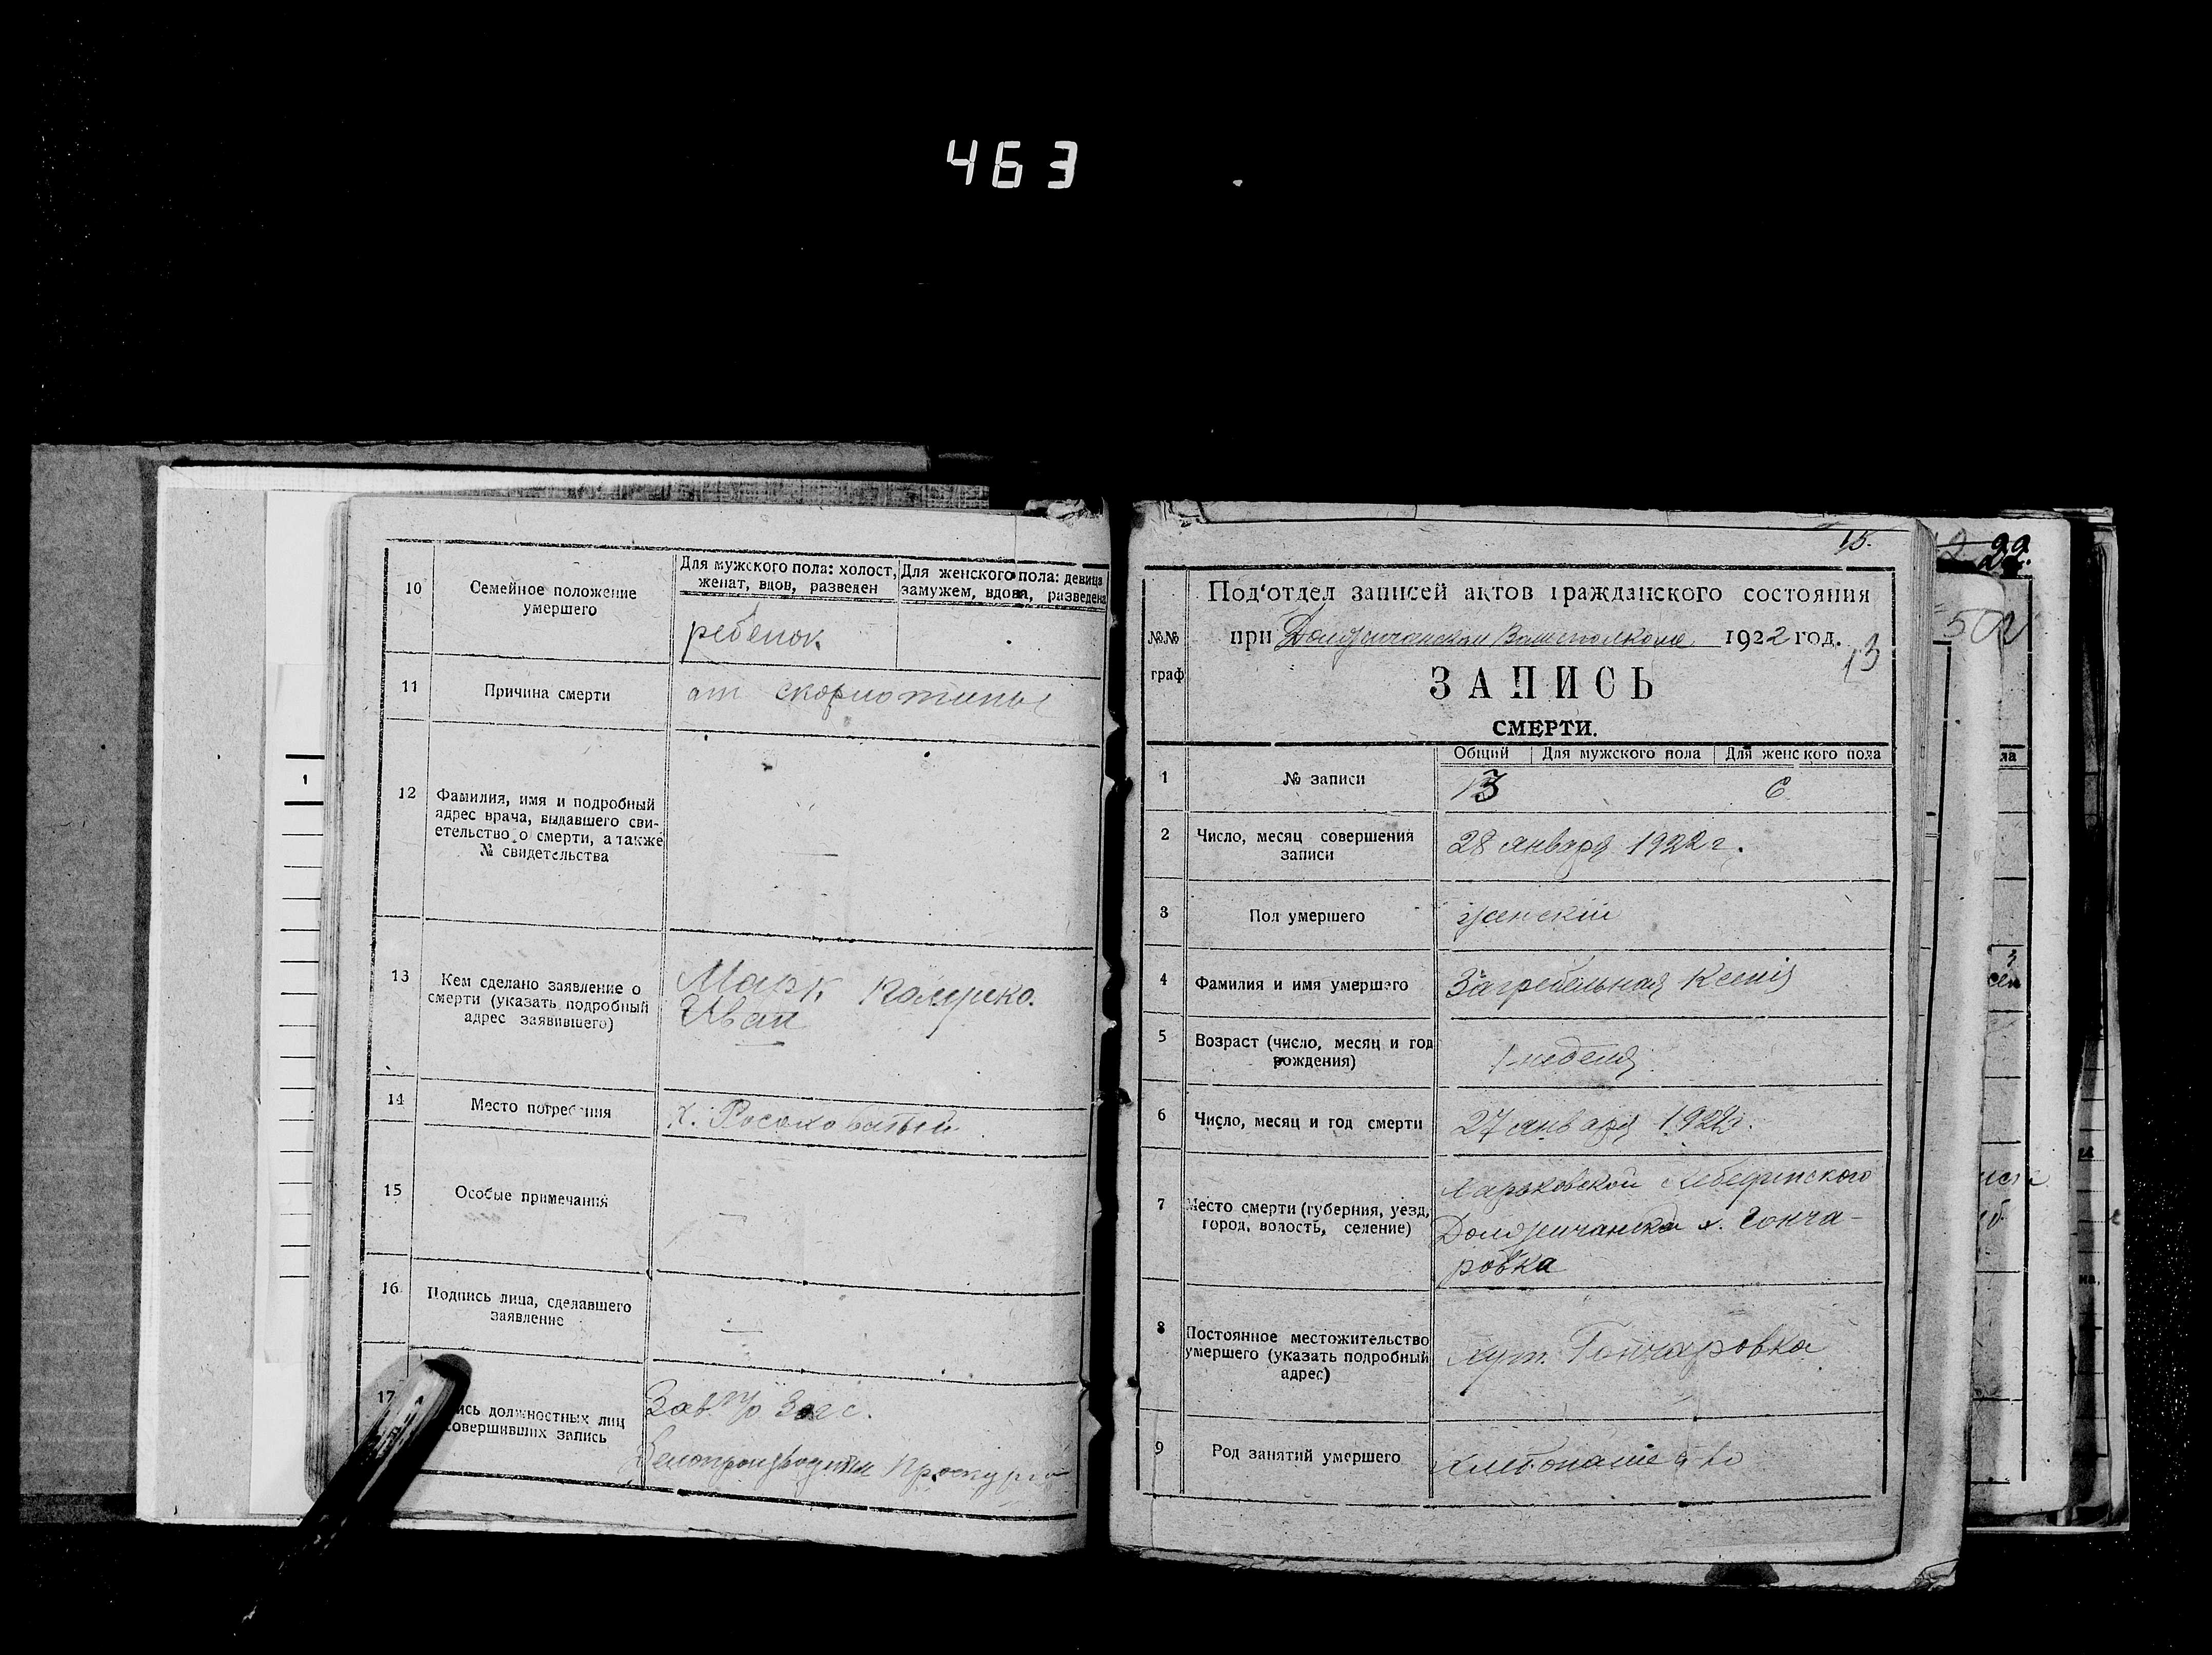 463
10
Семейное положение
умершего
Для мужского пола: холост,
женат, вдов, разведен
Для женского пола: девица
замужем, вдова, разведена
ребенок
11
Причина смерти
от скорлотины
12
Фамилия, имя и подробный
адрес врача, выдавшего сви-
етельство о смерти, а также
№ свидетельства
—
13
Кем сделано заявление о
смерти (указать подробный
адрес заявившего)
Марк
Иван
14
Место погребения
х. Росоховатый
15
Особые примечания
—
16
Подпись лица, сделавшего
заявление
—
17
ись должностных лиц
совершивших запись
Зав. п/о Загс.
Делопроизводитель
15.
№№
граф
Под'отдел записей актов гражданского состояния
при 1922 год.
13
ЗАПИСЬ
СМЕРТИ.
Общий Для мужского пола Для женского пола
1
№ записи
13 6
2
Число, месяц совершения
записи
28 января 1922 г.
3
Пол умершего
женский
4
Фамилия и имя умершего
Загребельная Ксенія
5
Возраст (число, месяц и год
рождения)
1 неделя
6
Число, месяц и год смерти
27 января 1922г.
7
Место смерти (губерния, уезд,
город, волость, селение)
Харьковской Лебединского
х. Гонча-
ровка
8
Постоянное местожительство
умершего (указать подробный
адрес)
хут. Гончаровка
9
Род занятий умершего
хлебопашество
22.
1